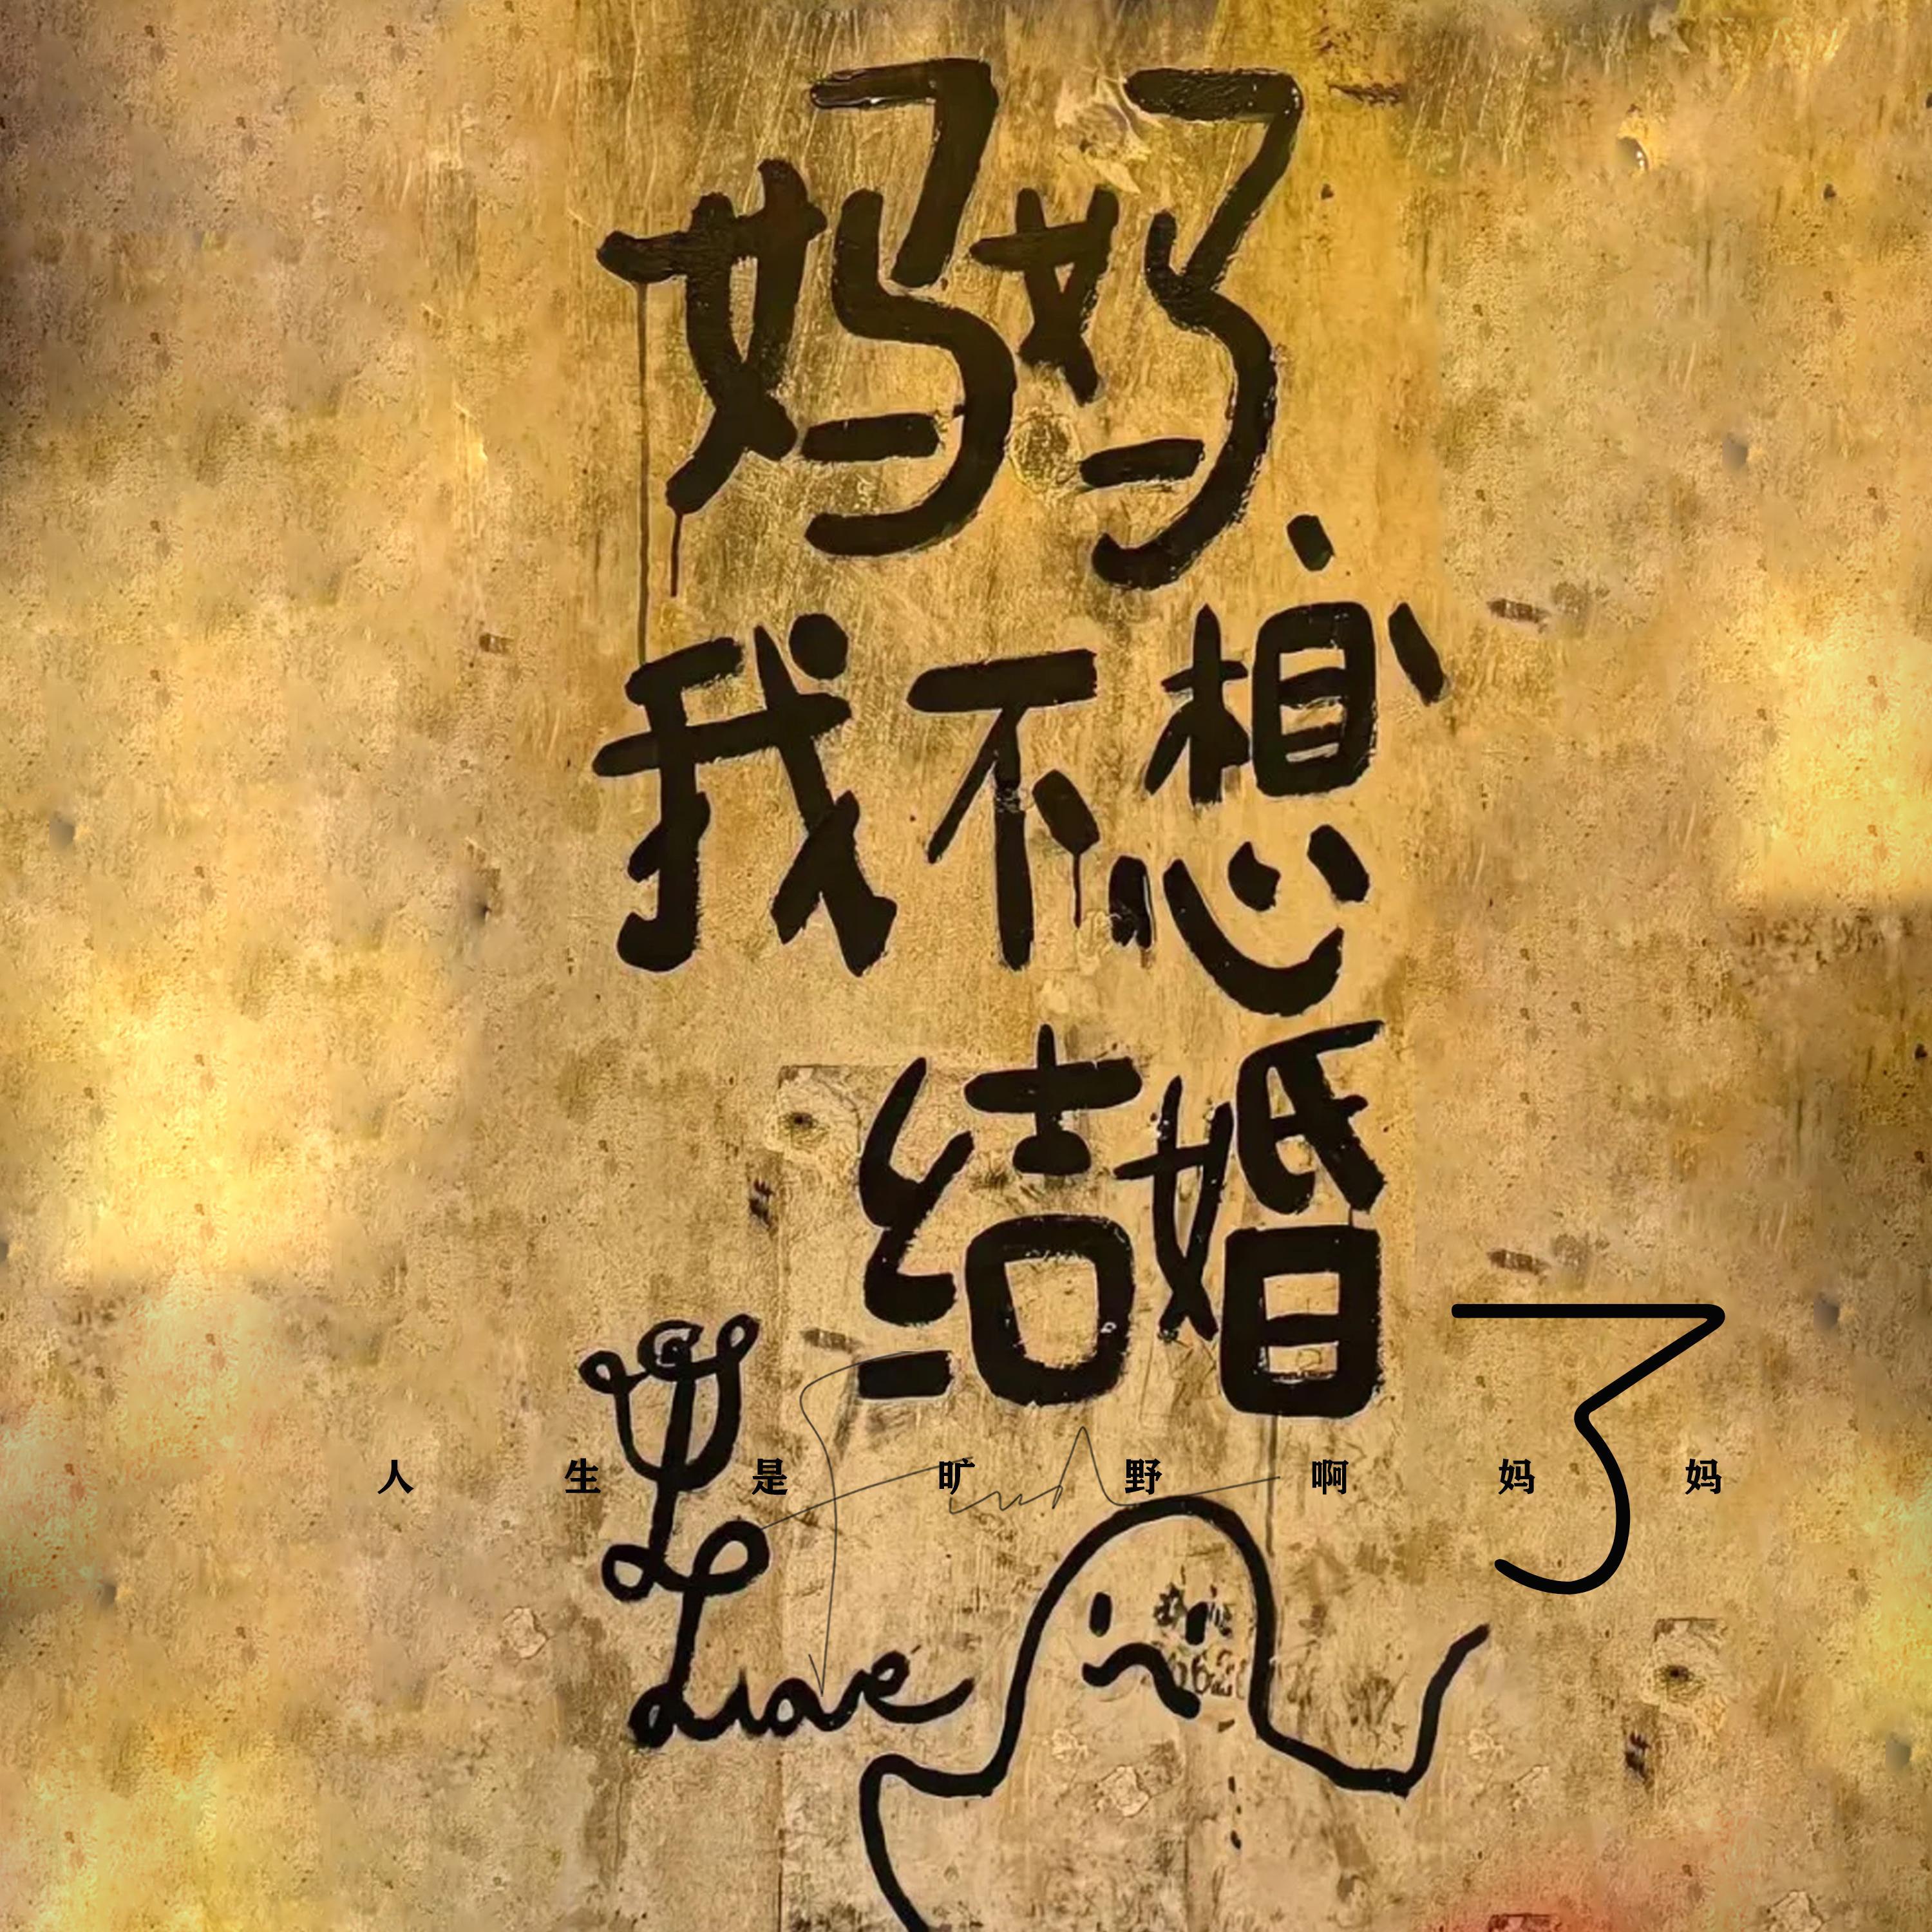 妈妈
我不想
结婚了
人生是旷野啊妈妈
Love